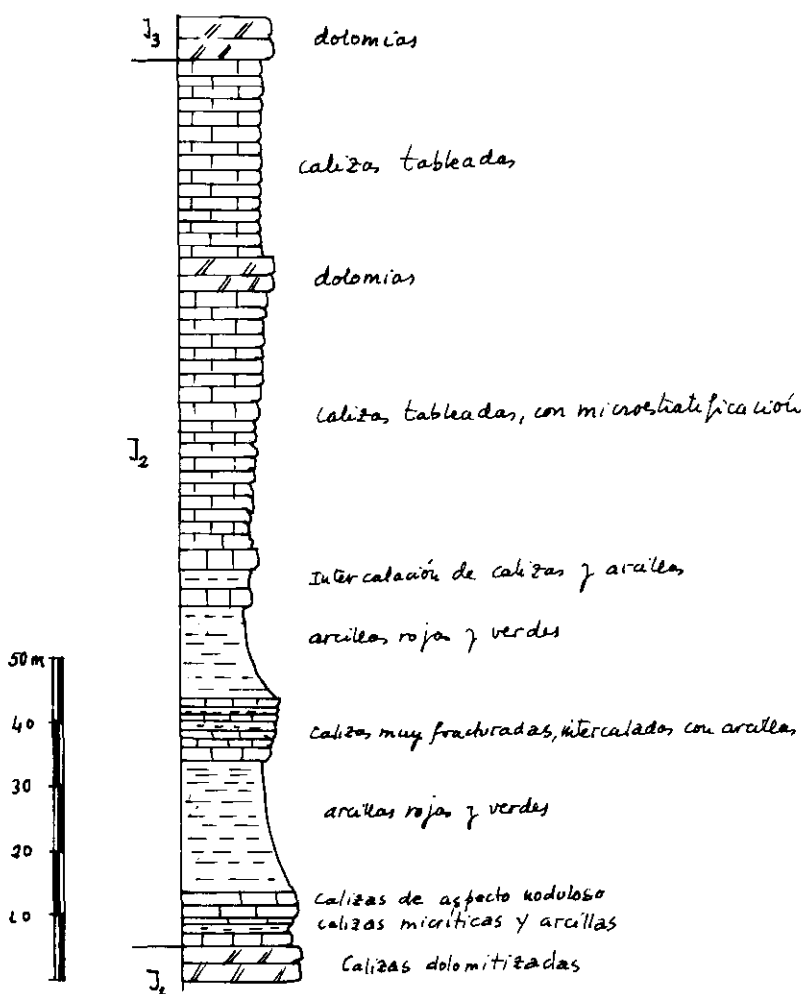 J3
dolomías
calizas tableadas
dolomías
calizas tableadas, con microestratificación
J2
Intercalación de calizas y arcillas
arcillas rojas y verdes
50 m
40
30
20
10
calizas muy fracturadas, intercalados con arcillas
arcillas rojas y verdes
calizas de aspecto noduloso
calizas micríticas y arcillas
Calizas dolomitizadas
J1